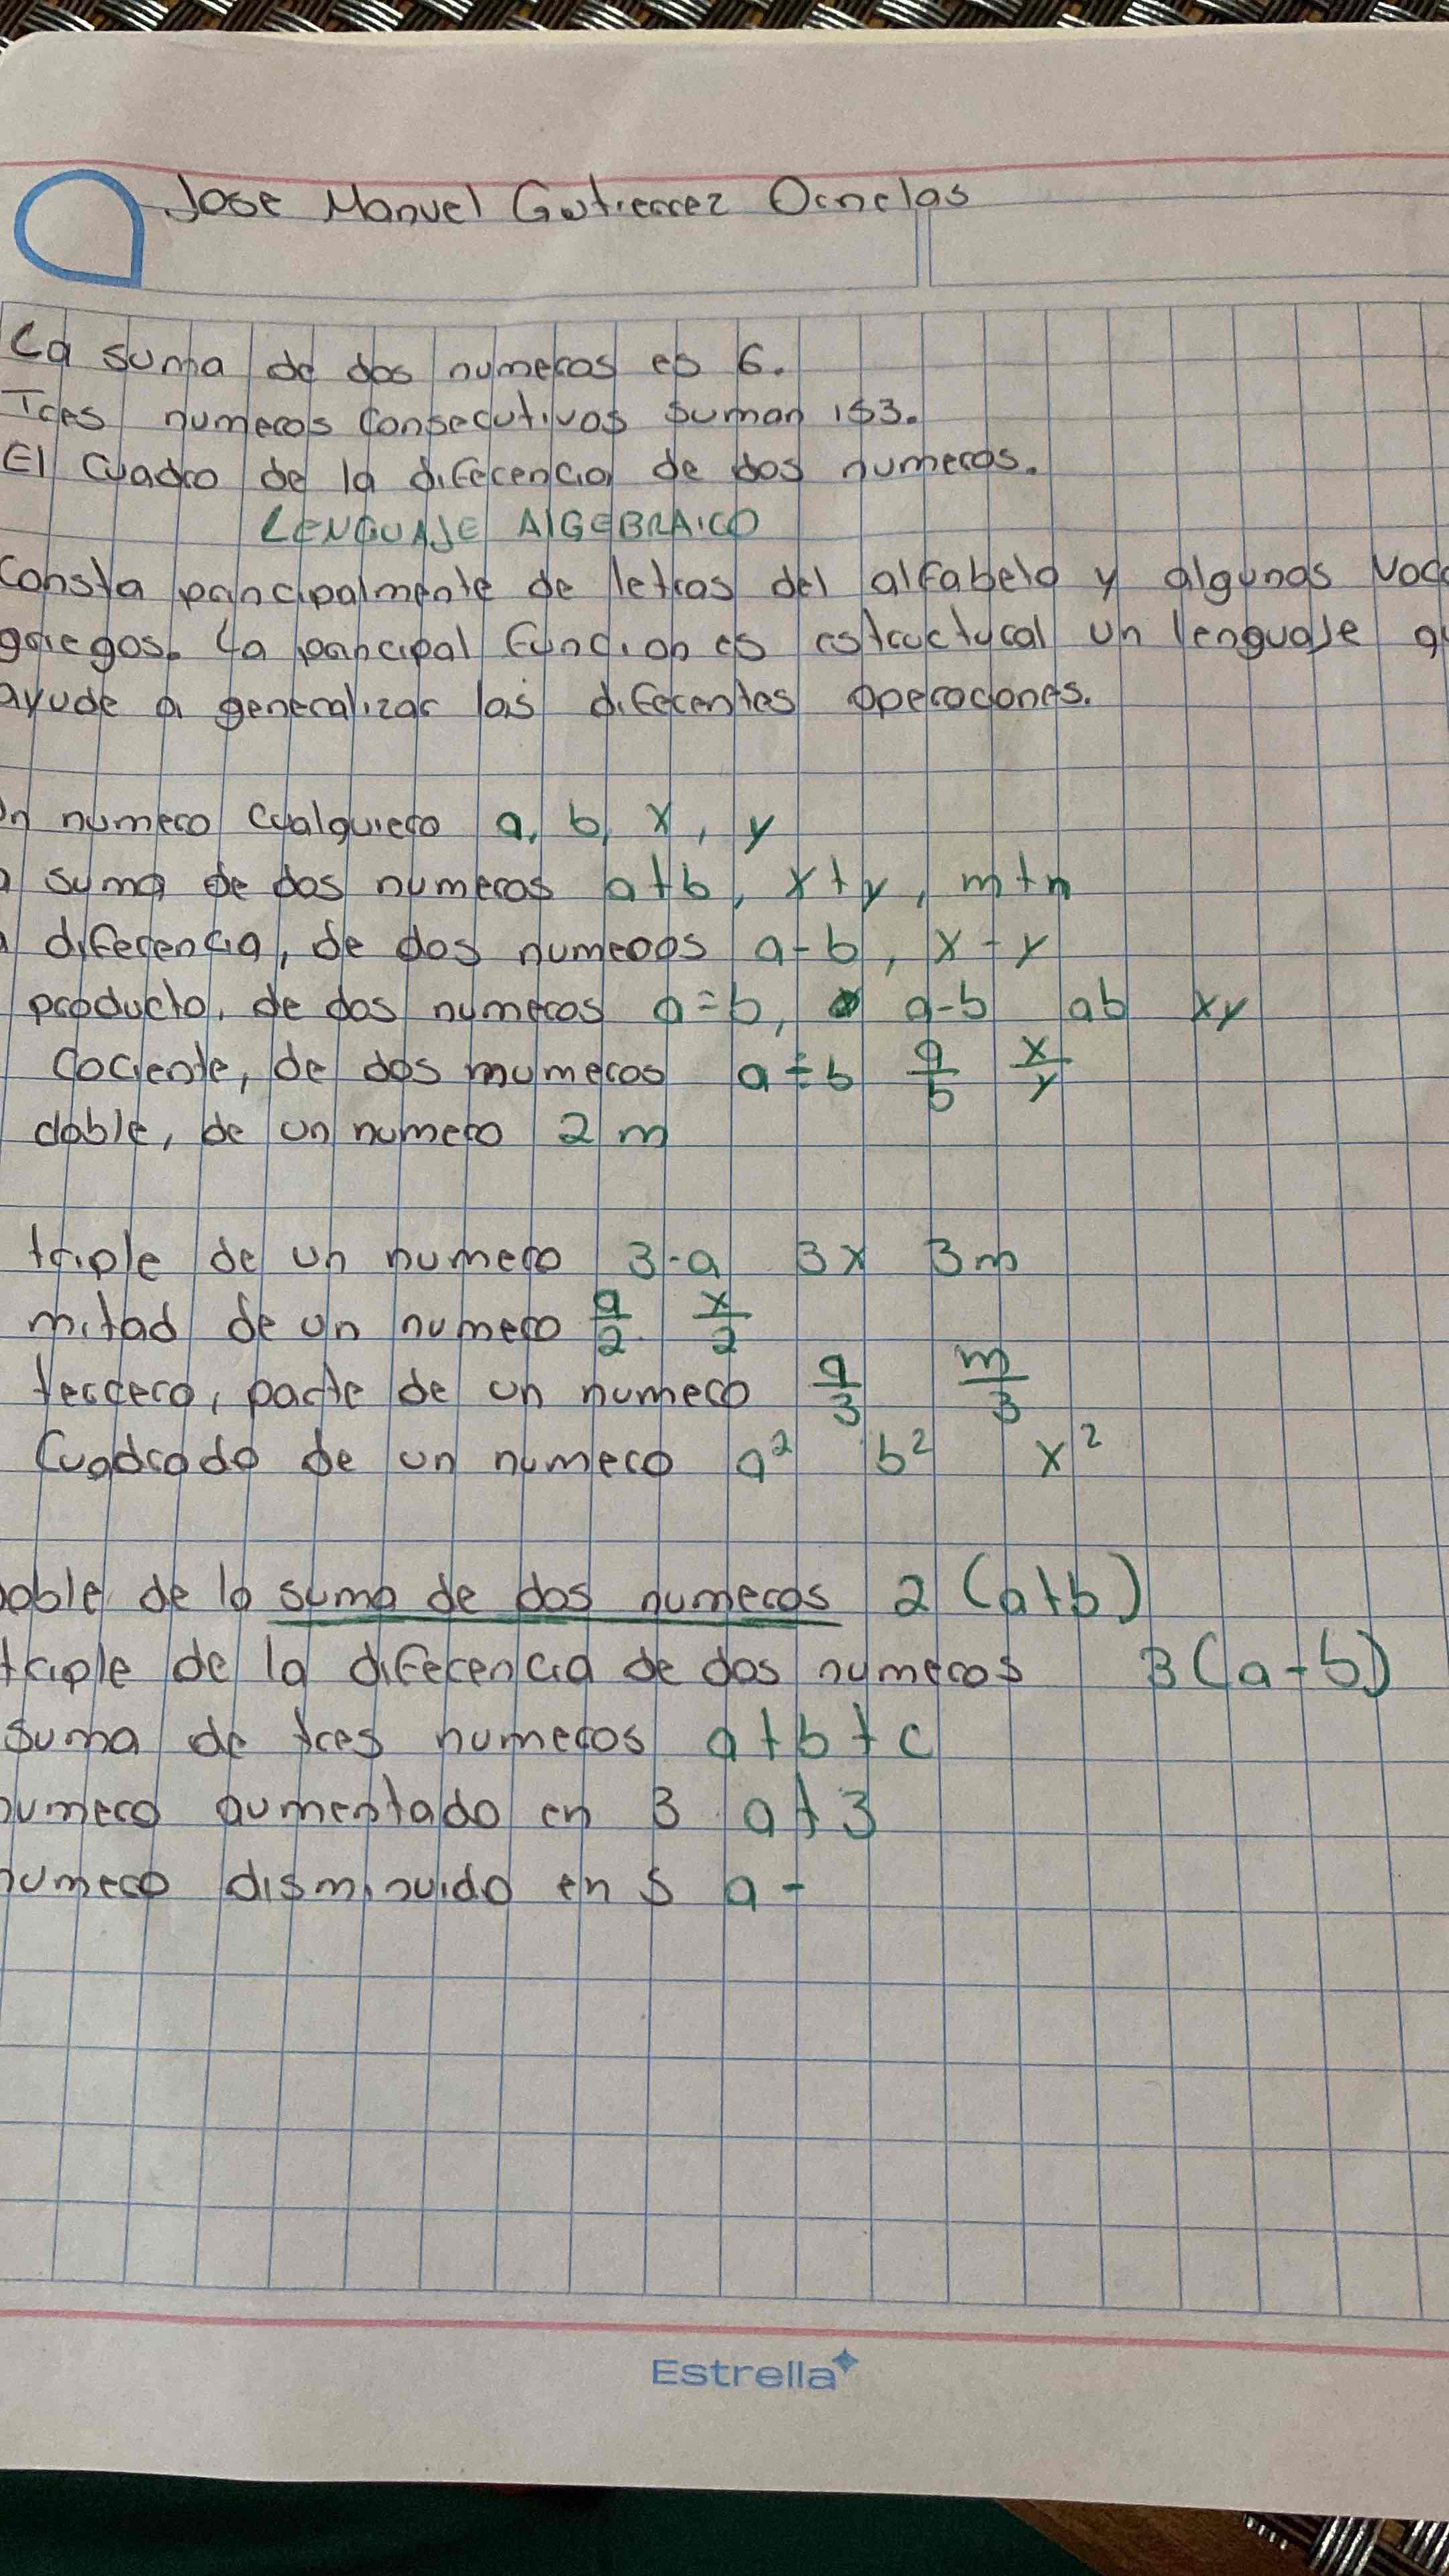 Jose Manuel Gutierrez Ornelas
La suma de dos numeros es 6.
Tres numeros consecutivos suman 153.
El cuadro de la diferencia de dos numeros.
LENGUAJE AlGEBRAICO
Consta principalmente de letras del alfabeto y algunos
griegos. La principal función es estructural un lenguaje
ayude a generalizar las diferentes operaciones.
numero cualquiero a, b, x, y
suma de dos numeros a+b, x+y, m+n
diferencia, de dos numeros a-b, x-y
producto, de dos numeros a=b, a-b ab xy
cociente, de dos mumeros a÷b a/b x/y
doble, de un numero 2m
triple de un numero 3·a 3x 3m
mitad de un numero a/2 x/2
tercero, parte de un numero a/3 m/3
Cuadrado de un numero a² b² x²
oble de la suma de dos numeros 2 (a+b)
triple de la diferencia de dos numeros 3(a-b)
suma de tres numeros a+b+c
numero aumentado en 3 a+3
numero disminuido en 5 a-
Estrella